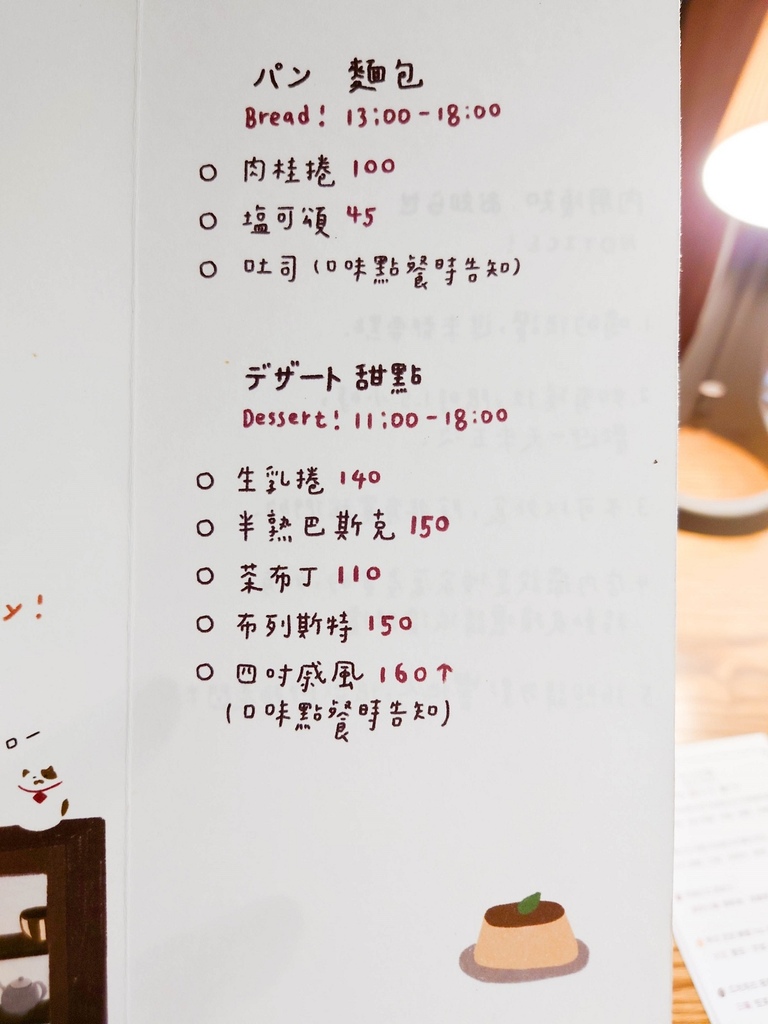 パン 麵包
Bread! 13:00-18:00
○ 肉桂捲 100
○ 塩可頌 45
○ 吐司(口味點餐時告知)
デザート 甜點
Dessert! 11:00-18:00
○ 生乳捲 140
○ 半熟巴斯克 150
○ 茶布丁 110
○ 布列斯特 150
○ 四吋戚風 160↑
(口味點餐時告知)
y!